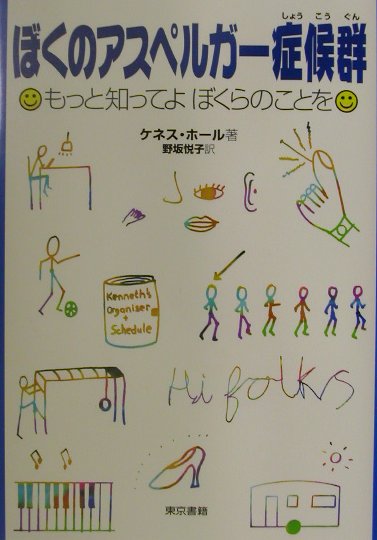 しょう こう ぐん
ぼくのアスペルガー症候群
もっと知ってよ ぼくらのことを
ケネス・ホール著
野坂悦子訳
Kenneth's
Organiser
+
Schedule
Hi folks
東京書籍